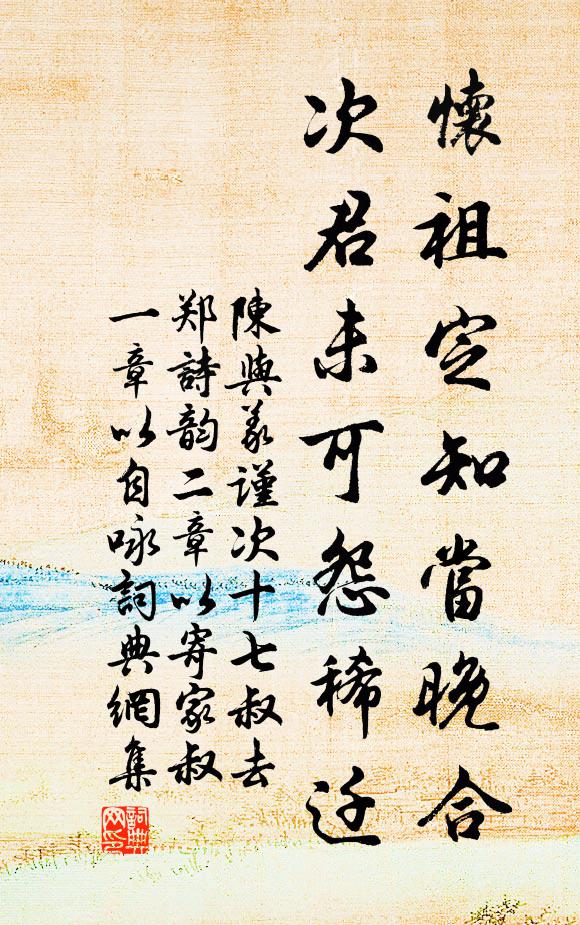 懷祖定知當晚合
次君未可怨稀迁
陳與義谨次十七叔去
郑詩韵二章以寄家叔
一章以自咏詞典網集